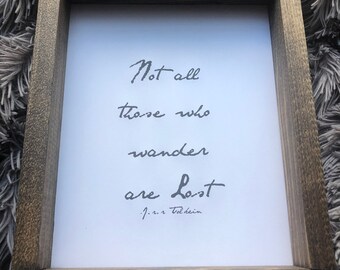 Not all
those who
wander
are Lost
J. R. R Tolkein